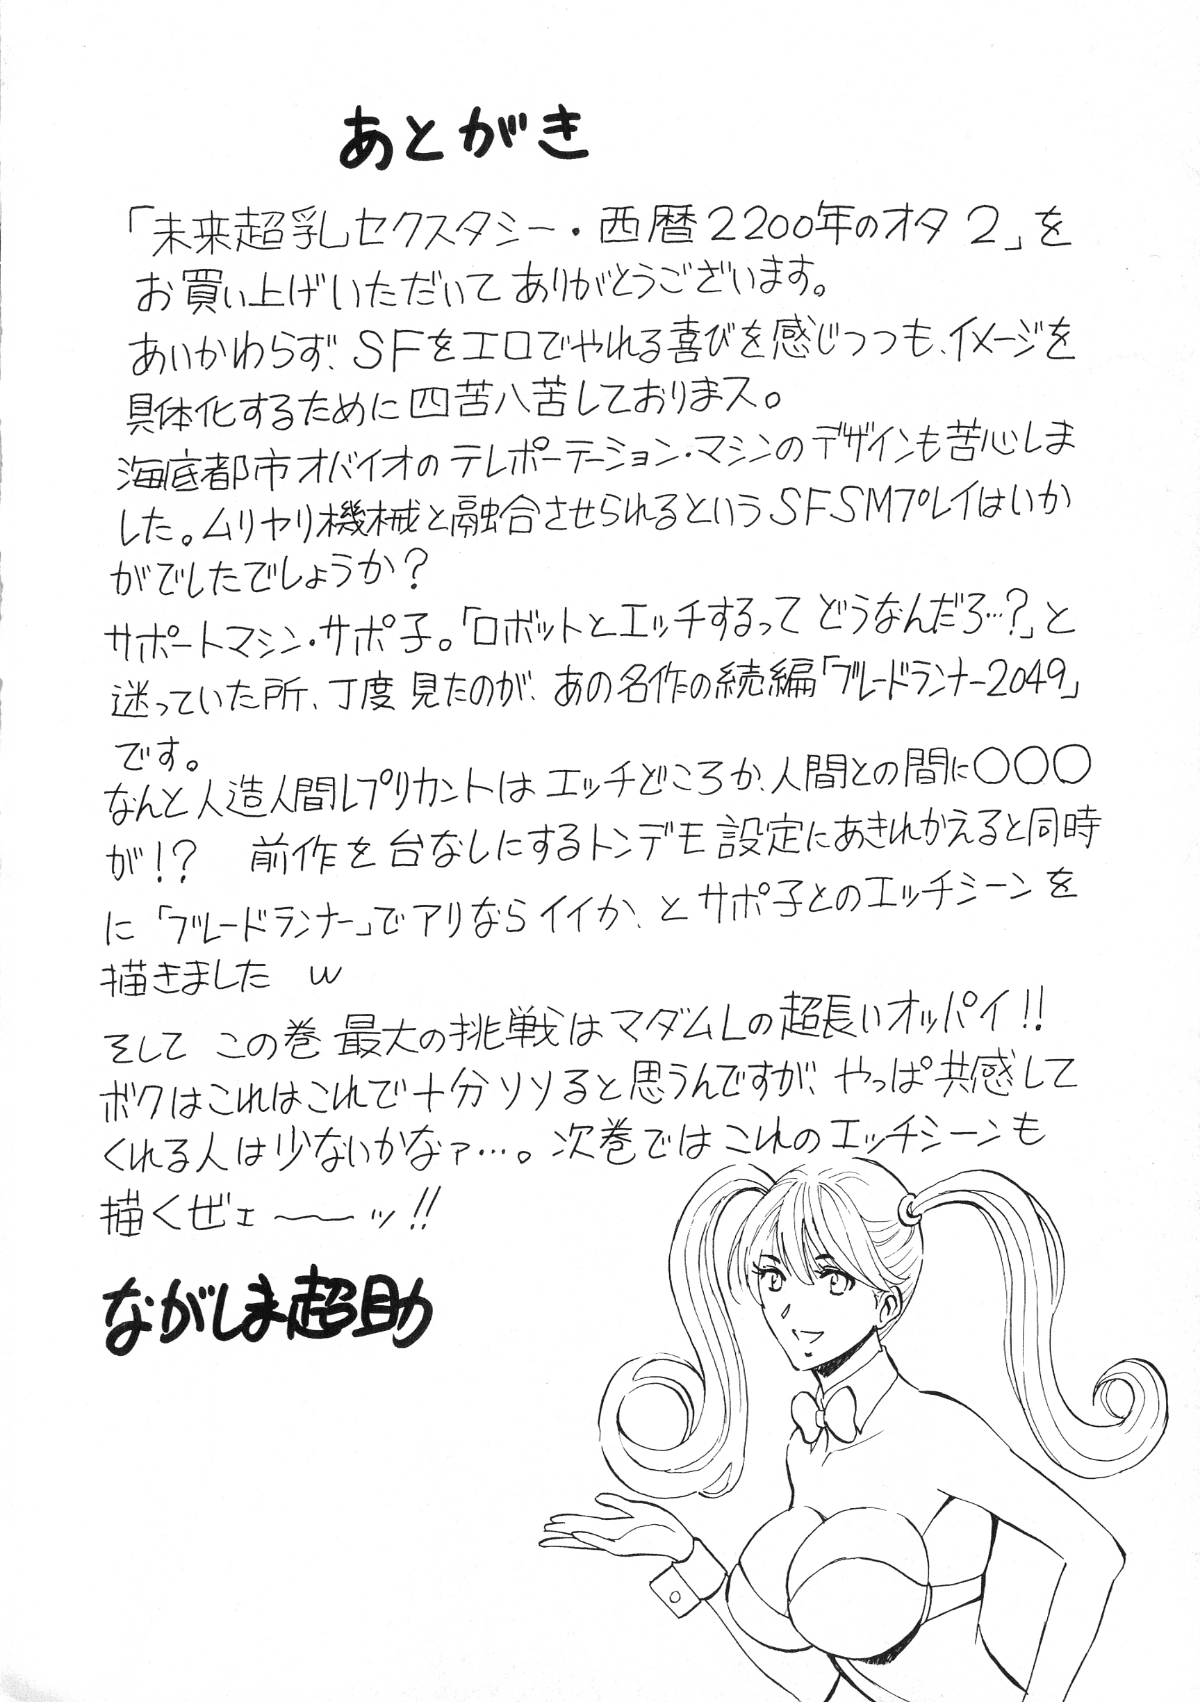 あとがき
「未来超乳セクスタシー・西暦2200年のオタ2」を
お買い上げいただいてありがとうございます。
あいかわらず、SFをエロでやれる喜びを感じつつも、イメージを
具体化するために四苦八苦しておりまス。
海底都市オバイオのテレポーテーション・マシンのデザインも苦心しま
した。ムリヤリ機械と融合させられるというSFSMプレイはいか
がでしたでしょうか?
サポートマシン・サポ子。「ロボットとエッチするってどうなんだろ…?」と
迷っていた所、丁度見たのが、あの名作の続編「ブレードランナー2049」
です。
なんと人造人間レプリカントはエッチどころか、人間との間に〇〇〇
が!? 前作を台なしにするトンデモ設定にあきれかえると同時
に「ブレードランナー」でアリならイイか、とサポ子とのエッチシーンを
描きました w
そして この巻最大の挑戦はマダムLの超長いオッパイ!!
ボクはこれはこれで十分ソソると思うんですが、やっぱ共感して
くれる人は少ないかなァ…。次巻ではこれのエッチシーンも
描くぜェ〜〜ッ!!
ながしま超助